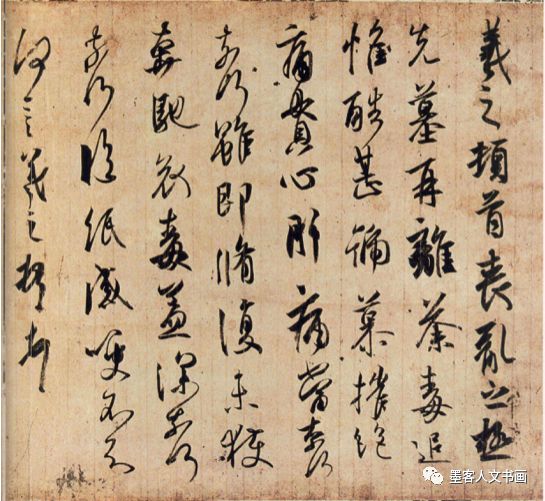 羲之頓首喪亂之極
先墓再離荼毒追
惟酷甚號慕摧絕
痛貫心肝痛當奈何
奈何雖即脩復未獲
奔馳哀毒益深奈何
奈何臨紙感哽不知
何言羲之頓首
墨客人文书画